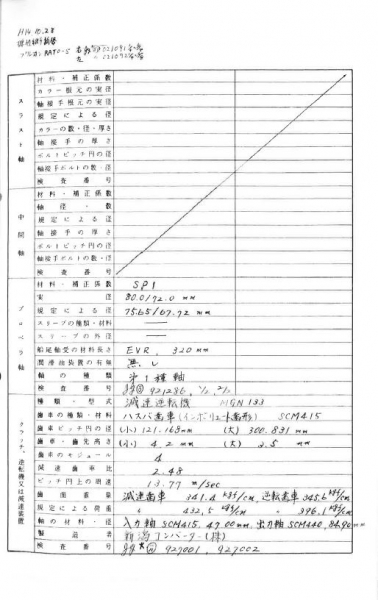 H14.10.28
スラスト軸
材料・補正係数
カラー根元の実径
軸接手根元の実径
規定による径
カラーの数・径・厚さ
軸接手の厚さ
ボルトピッチ円の径
軸接手ボルトの数・径
検査番号
中間軸
材料・補正係数
軸径・数
規定による径
軸接手の厚さ
ボルトピッチ円の径
軸接手ボルトの数・径
検査番号
プロペラ軸
材料・補正係数 SP1
実径 80.0/72.0 mm
規定による径 75.65/67.72 mm
スリーブの種類・材料 ——
スリーブの外径 ——
船尾軸受の材料長さ EVR, 320 mm
潤滑油装置の有無 無し
軸の種類 第1種軸
検査番号 921286, 1/2, 2/2
クラッチ、逆転機又は減速装置
種類・型式 減速逆転機 MGN133
歯車の種類・材料 ハスバ歯車(インボリュート歯形) SCM415
歯車ピッチ円の径 (小) 121.168 mm (大) 300.831 mm
歯車・歯先高さ (小) 4.2 mm (大) 3.5 mm
歯車のモジュール 4
減速歯車比 2.48
ピッチ円上の周速 13.77 m/sec
歯面荷重 減速歯車 341.4 kgf/cm, 逆転歯車 345.6 kgf/cm
規定による荷重 〃 432.5 kgf/cm 〃 396.1 kgf/cm
軸の材料・径 入力軸 SCM415, 47.00mm, 出力軸 SCM440, 84.90 mm
製造者 新潟コンバーター(株)
検査番号 927001, 927002